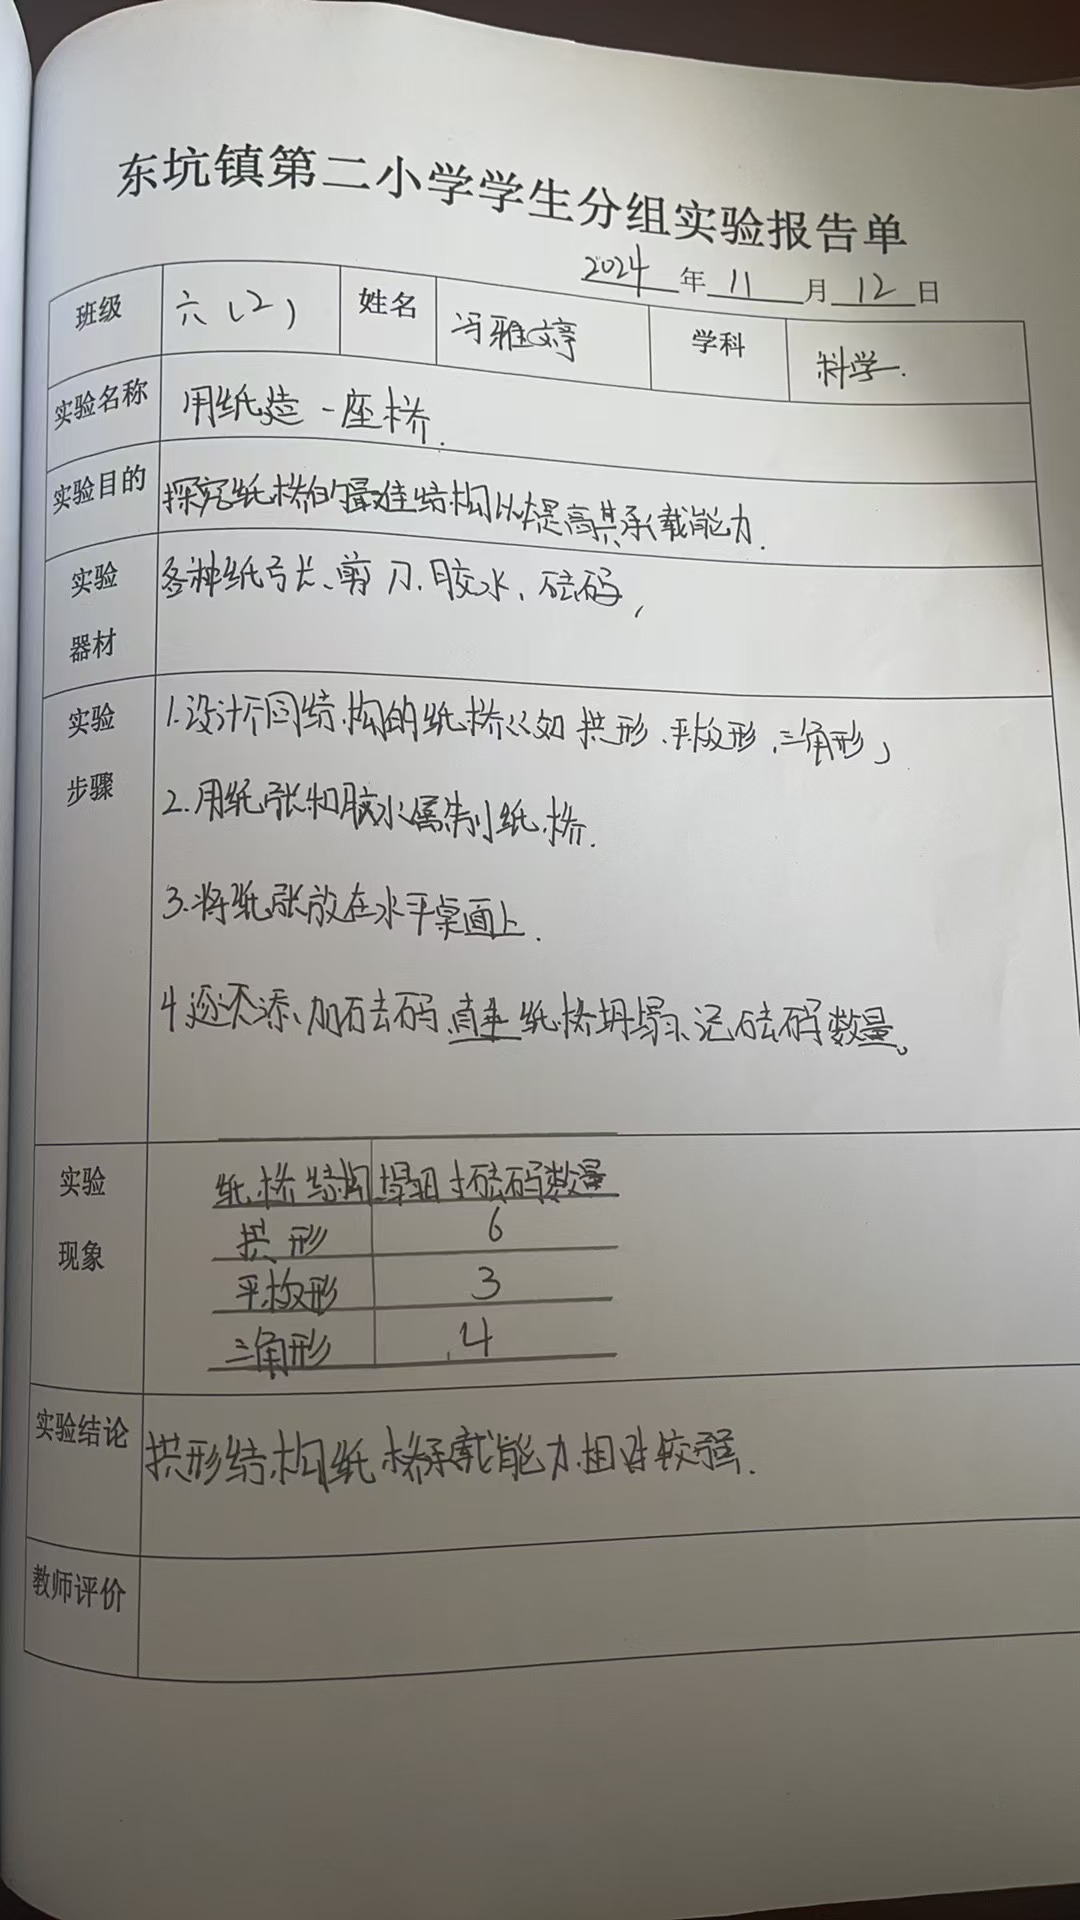 东坑镇第二小学学生分组实验报告单
2024年11月12日
班级 六(2) 姓名 冯雅婷 学科 科学.
实验名称 用纸造一座桥.
实验目的 探究纸桥的最佳结构以提高其承载能力.
实验器材 各种纸张、剪刀、胶水、砝码,
实验步骤 1.设计不同结构的纸桥(如拱形、平板形、三角形)
2.用纸张和胶水制纸桥.
3.将纸张放在水平桌面上.
4.逐添加砝码,直至纸桥坍塌、记砝码数量。
实验现象
纸桥结构 塌时砝码数量
拱形 6
平板形 3
三角形 4
实验结论 拱形结构纸桥承载能力相对较强.
教师评价